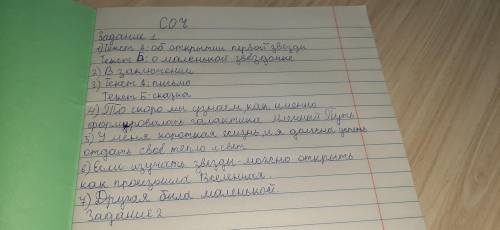 СОЧ
Задание 1
1) Текст А: об открытии первой звезды
Текст Б: о маленькой звёздочке
2) В заключении
3) Текст А: письмо
Текст Б: сказка
4) То скоро мы узнаем, как именно
формировалась галактика Млечный Путь
5) У меня короткая жизнь и я должна успеть
отдать своё тепло и свет
6) Если изучать звезды можно открыть
как произошла Вселенная.
7) Другая была маленькой
Задание 2